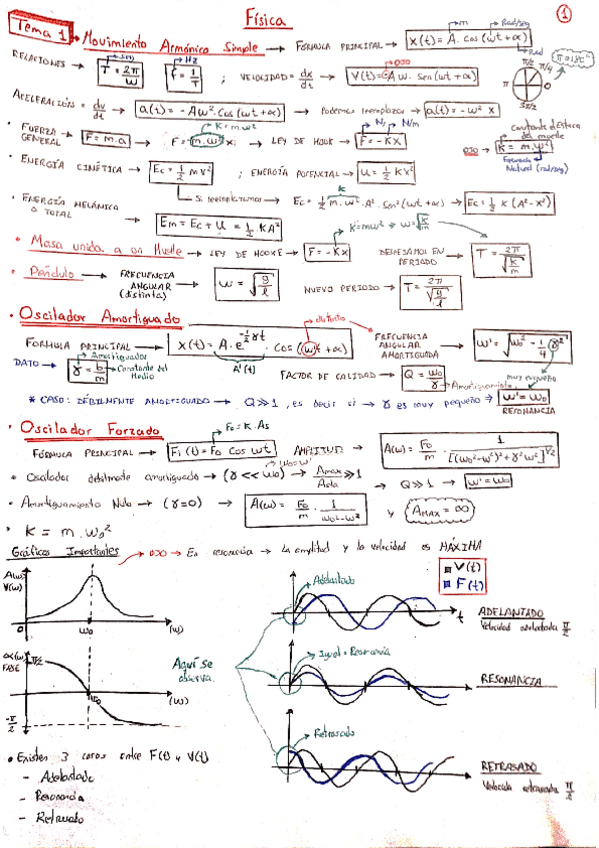 Física
1
Tema 1 → Movimiento Armónico Simple → FÓRMULA PRINCIPAL → x(t) = A · cos (ωt + α)
m
Rad/seg
Rad
RELACIONES → T = 2π/ω f = 1/T ; VELOCIDAD = dx/dt → V(t) = -Aω · sen (ωt + α)
Hz
OJO
π/2
π/4
3π/2
π = 180º
ACELERACIÓN = dv/dt → a(t) = -Aω² · cos (ωt + α) → Podemos reemplazar → a(t) = -ω² x
• FUERZA GENERAL → F = m · a → F = -m · ω² x; → LEY DE HOOK → F = -Kx
K = m · ω²
N
N/m
OJO → K = m · ω²
Constante del muelle
Natural (rad/seg)
• ENERGÍA CINÉTICA → Ec = 1/2 m V² ; ENERGÍA POTENCIAL → U = 1/2 K x²
Si reemplazamos → Ec = 1/2 m · ω² · A² · sen² (ωt + α) → Ec = 1/2 K (A² - x²)
K
• ENERGÍA MECÁNICA O TOTAL → Em = Ec + U = 1/2 KA²
K = mω² → ω = √(K/m)
• Masa unida a un Muelle → LEY DE HOOKE → F = -Kx DESPEJAMOS EN PERIODO → T = 2π/√(K/m)
• Péndulo → FRECUENCIA ANGULAR (distinta) → ω = √(g/l) NUEVO PERIODO → T = 2π/√(g/l)
• Oscilador Amortiguado
distinto
FORMULA PRINCIPAL → x(t) = A · e^(-1/2 γt) · cos (ω't + α)
A'(t)
FRECUENCIA ANGULAR AMORTIGUADA → ω' = √(ω₀² - 1/4 γ²)
DATO → γ = b/m
Amortiguador
Constante del Medio
FACTOR DE CALIDAD → Q = ω₀/γ
Amortiguamiento
muy pequeño
* CASO: DÉBILMENTE AMORTIGUADO → Q >> 1, es decir si → γ es muy pequeño → ω' = ω₀
RESONANCIA
• Oscilador Forzado
F₀ = K · As
FÓRMULA PRINCIPAL → Fi (t) = F₀ cos ωt AMPLITUD → A(ω) = F₀/m · 1/[(ω₀² - ω²)² + γ² ω²]^1/2
• Oscilador debilmente amortiguado → (γ << ω₀) → Amax >> 1 → Q >> 1 → ω' = ω₀
• Amortiguamiento Nulo → (γ = 0) → A(ω) = F₀/m · 1/(ω₀² - ω²) y AMAX = ∞
• K = m · ω₀²
Gráficas Importantes → OJO → En resonancia → La amplitud y la velocidad es MÁXIMA
V(t)
F(t)
A(ω)
V(ω)
0
ω₀
(ω)
Adelantado
t
ADELANTADO
Velocidad adelantada π/2
α(ω)
FASE
π/2
ω₀
(ω)
-π/2
Aquí se observa
Igual = Resonancia
RESONANCIA
Retrasado
RETRASADO
Velocidad retrasada π/2
• Existen 3 casos entre F(t) y V(t)
- Adelantado
- Resonancia
- Retrasado